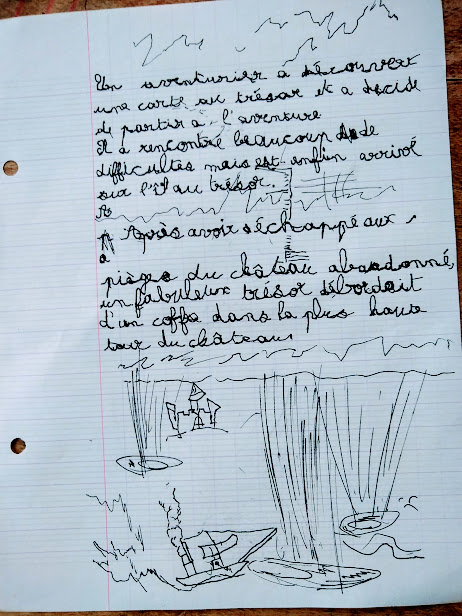 Un aventurier a découvert
une carte au trésor et a décidé
de partir à l'aventure
Il a rencontré beaucoup de
difficultés mais est enfin arrivé
sur l'îl au trésor.
A
Après avoir échappé aux
a
pièges du château abandonné,
un fabuleux trésor débordait
d'un coffe dans la plus haute
tour du château